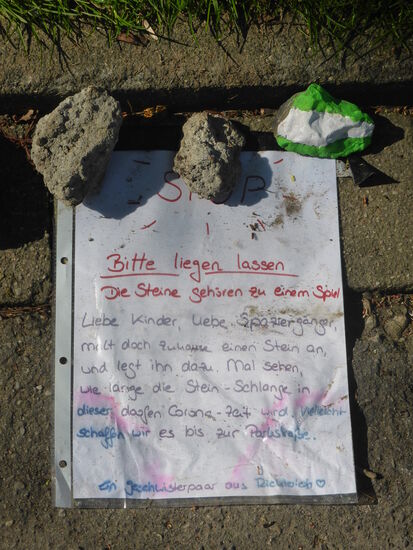 STOP
Bitte liegen lassen
Die Steine gehören zu einem Spiel
Liebe Kinder, liebe Spaziergänger,
malt doch zuhause einen Stein an,
und legt ihn dazu. Mal sehen,
wie lange die Stein-Schlange in
dieser doofen Corona-Zeit wird, vielleicht
schaffen wir es bis zur Parkstraße.
Ein Geschwisterpaar aus